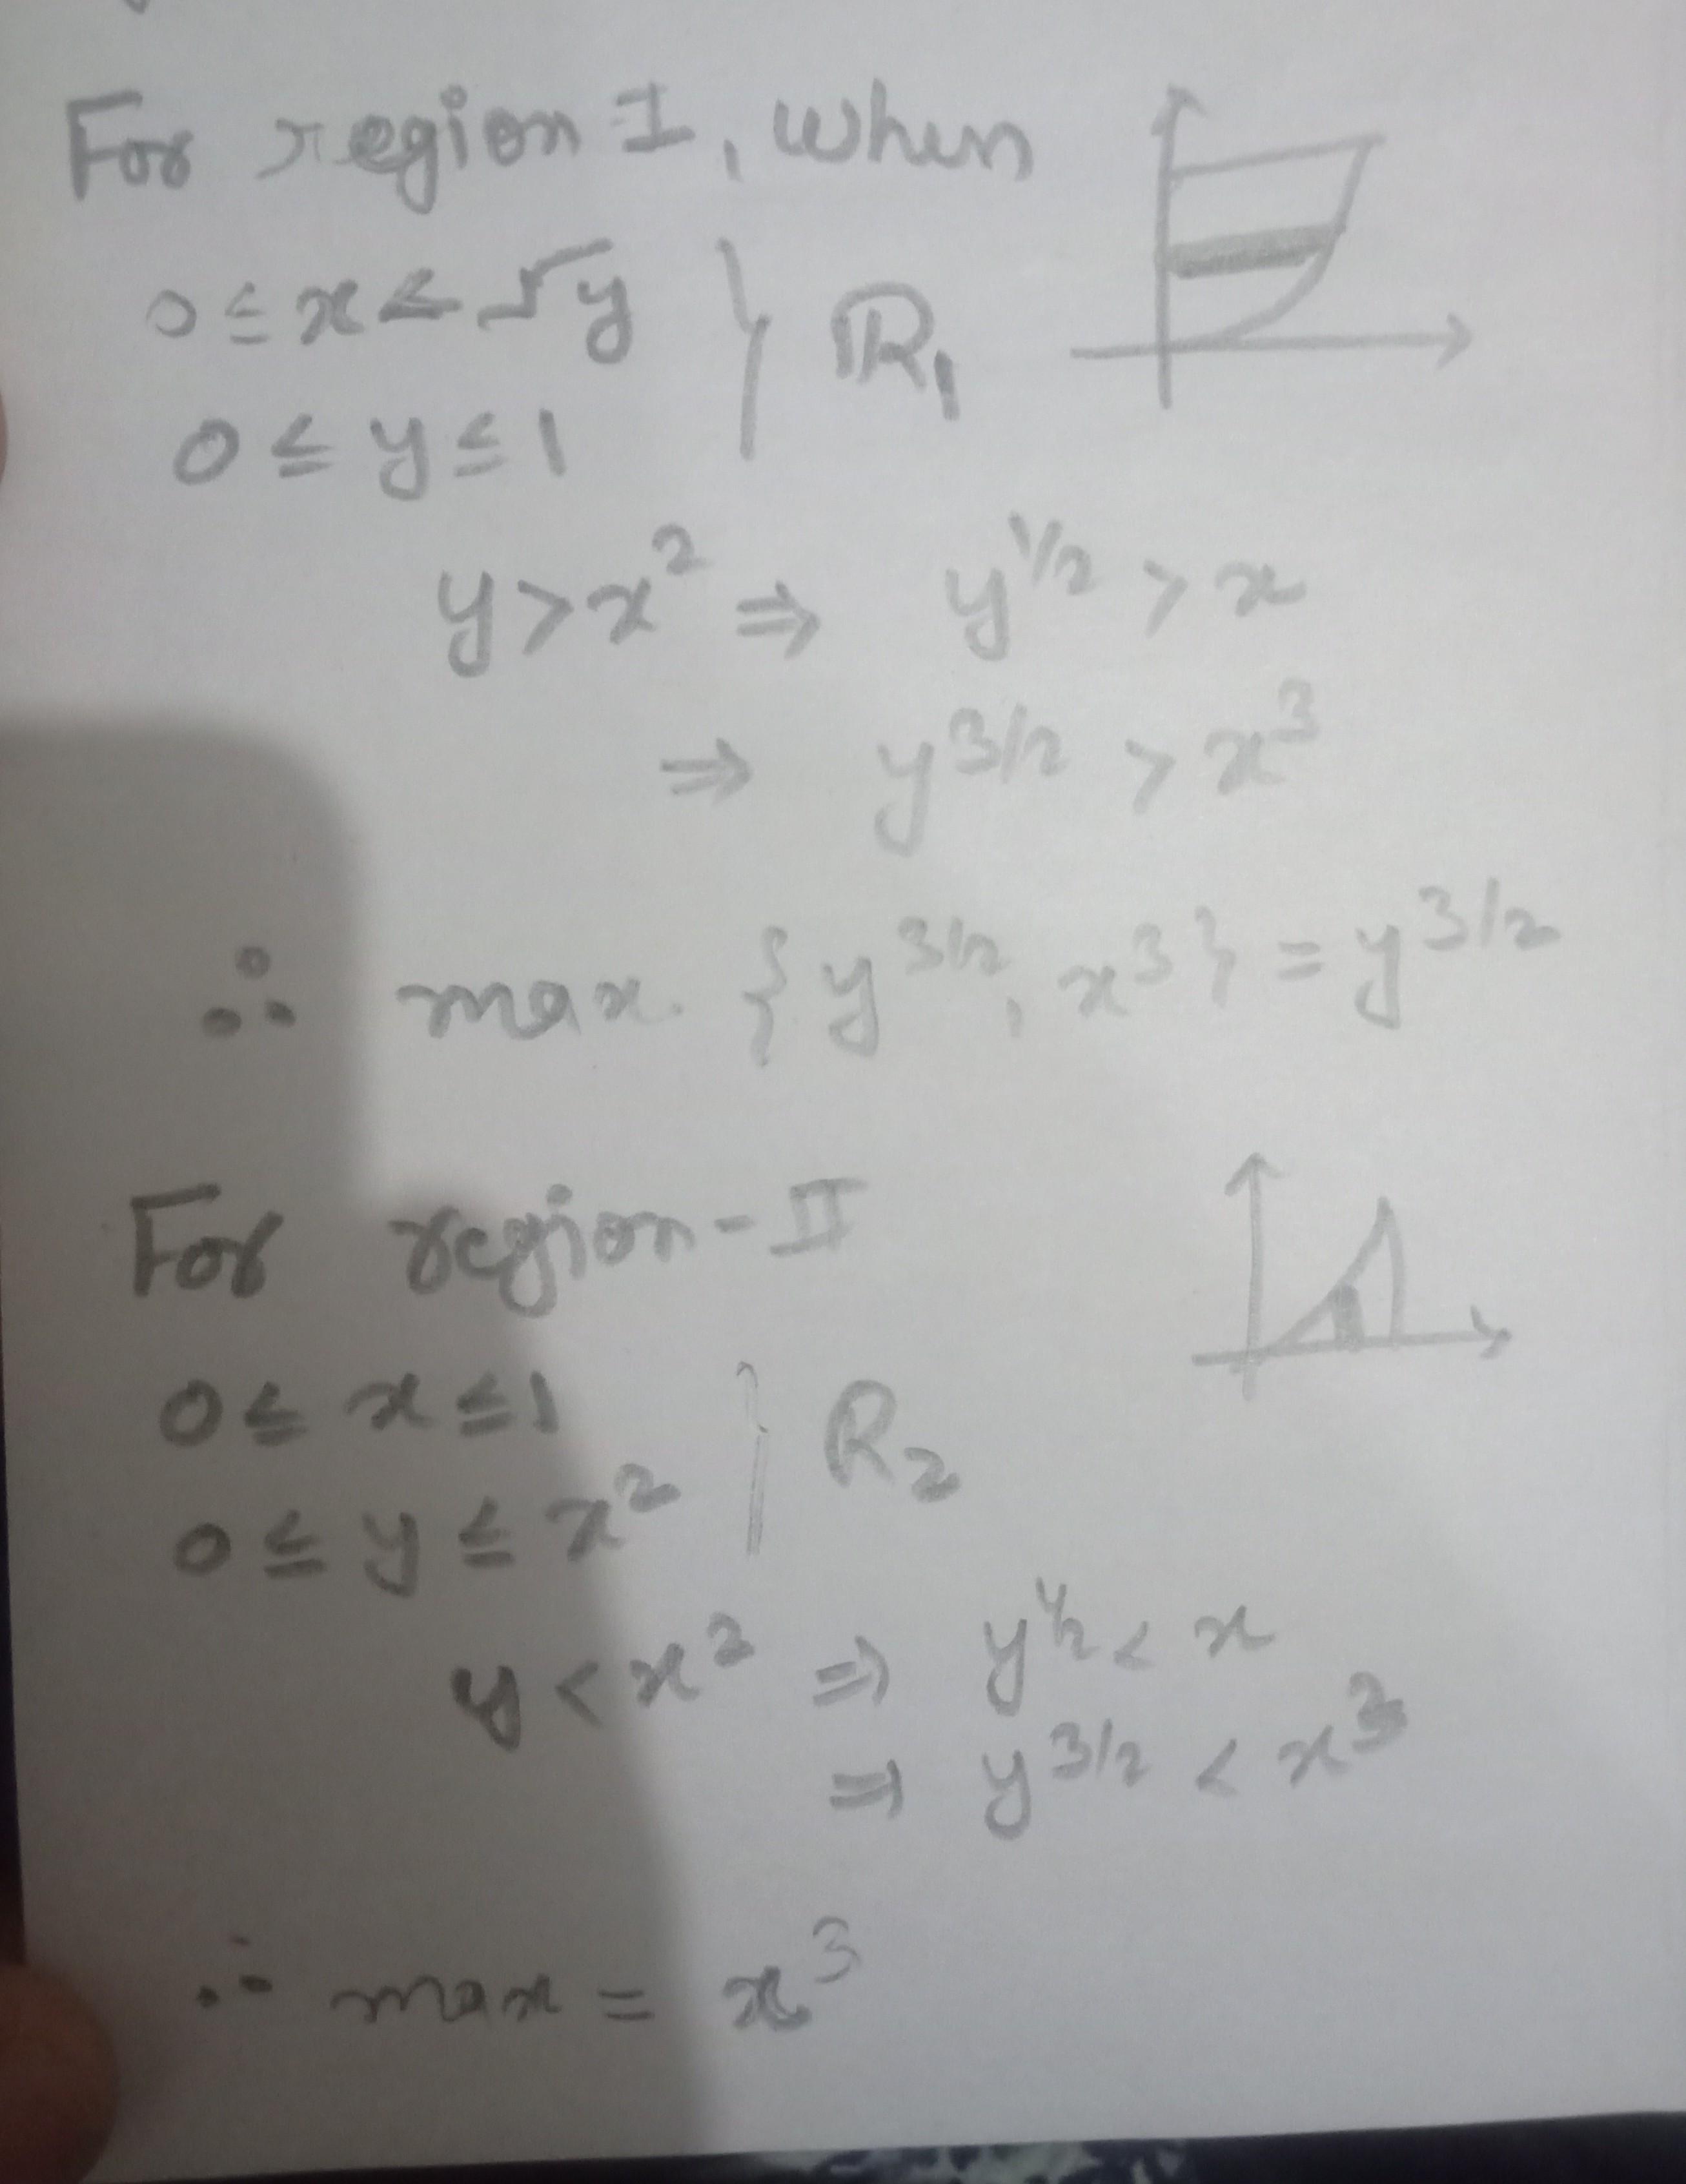 For region I, when
0 ≤ x < √y
0 ≤ y ≤ 1 } R₁
y > x² ⇒ y^1/2 > x
⇒ y^3/2 > x³
∴ max. {y^3/2, x³} = y^3/2
For region-II
0 ≤ x ≤ 1
0 ≤ y ≤ x² } R₂
y < x² ⇒ y^1/2 < x
⇒ y^3/2 < x³
∴ max = x³